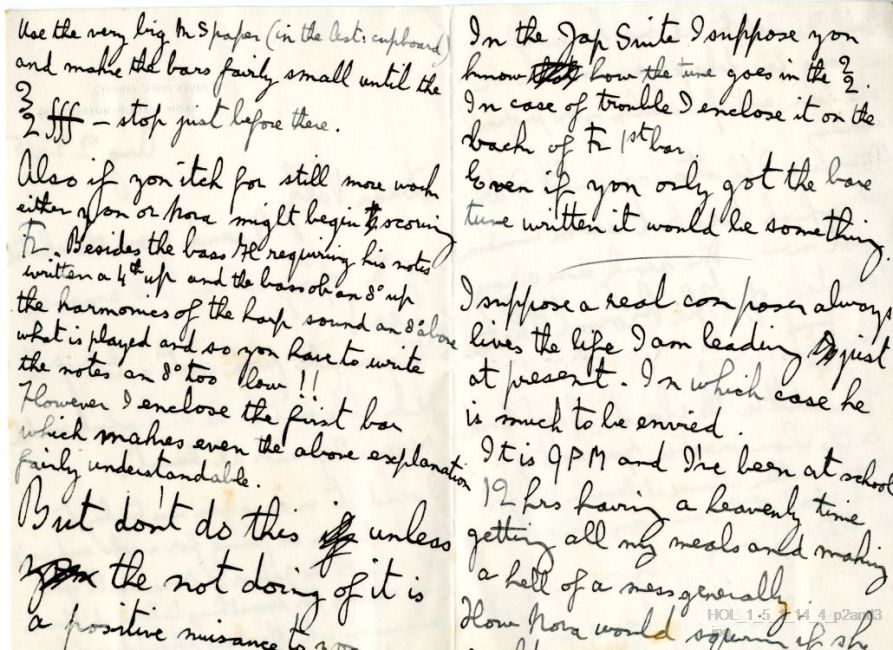 Use the very big MS paper (in the Cest: cupboard)
and make the bars fairly small until the
3
2 fff – stop just before there.
Also if you itch for still more work
either you or Nora might begin scoring
Besides the bass requiring his notes
written a 4th up and the bass ob an 8º up
the harmonics of the harp sound an 8º above
what is played and so you have to write
the notes an 8º too low !!
However I enclose the first bar
which makes even the above explanation
fairly understandable.
But don't do this unless
the not doing of it is
a positive nuisance to you
In the Jap Suite I suppose you
know how the tune goes in the 3
2.
In case of trouble I enclose it on the
back of 1st bar.
Even if you only got the bare
tune written it would be something.
I suppose a real composer always
lives the life I am leading just
at present. In which case he
is much to be envied.
It is 9 PM and I've been at school
12 hrs having a heavenly time
getting all my meals and making
a hell of a mess generally.
How Nora would squirm if she
HOL_1_5_1_14_4_p2and3